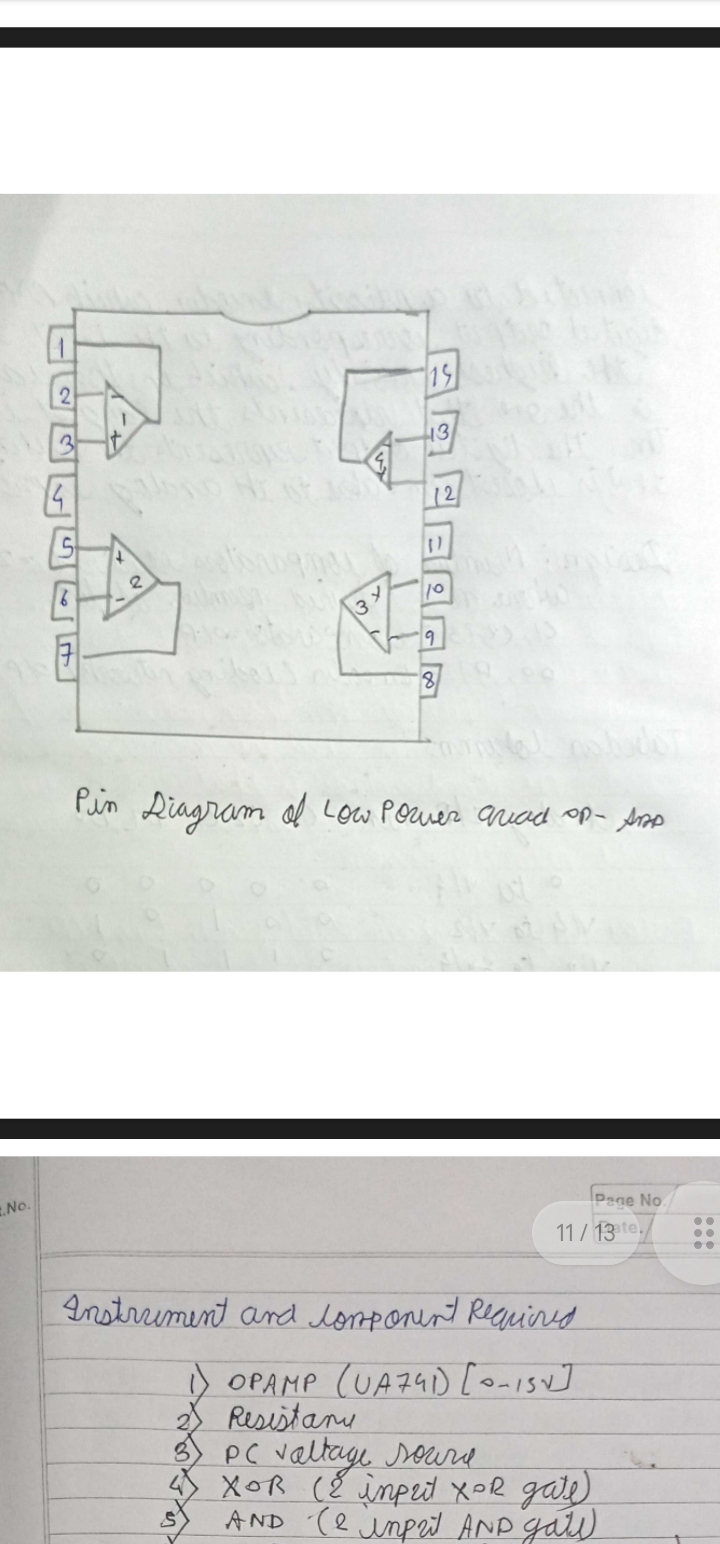 1
2
3
4
5
6
7
14
13
12
11
10
9
8
-
1
+
+
2
-
4
+
3
+
-
Pin Diagram of Low Power quad OP- Amp
.No.
Page No.
11 / 13
Date.
Instrument and Component Required
1) OPAMP (UA741) [0-15V]
2) Resistanu
3) DC valtage sourse
4) XOR (2 input XOR gate)
5) AND (2 input AND gate)